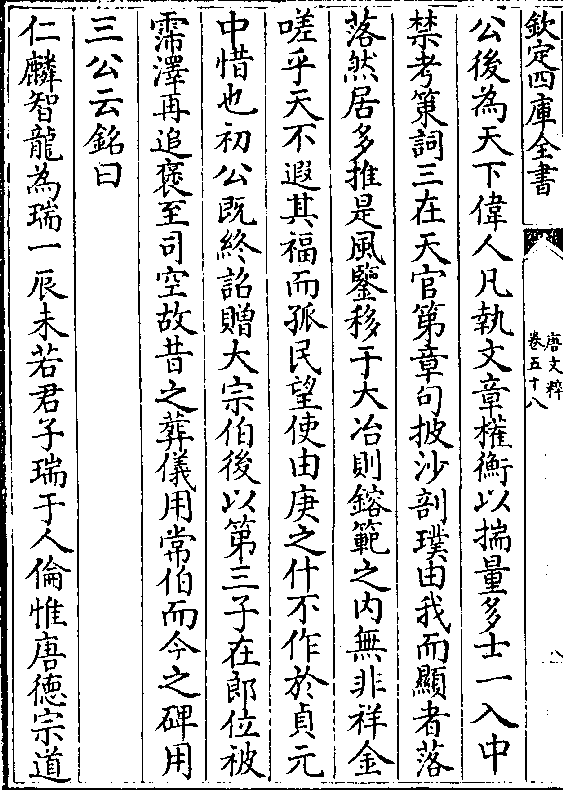 欽定四庫全書
唐文粹
卷五十八
公後為天下偉人凡執文章權衡以揣量多士一入中
禁考策詞三在天官第章句披沙剖璞由我而顯者落
落然居多推是風鑒移于大冶則鎔範之内無非祥金
嗟乎天不遐其福而孤民望使由庚之什不作於貞元
中惜也初公既終詔贈大宗伯後以第三子在郎位被
霈澤再追褒至司空故昔之葬儀用常伯而今之碑用
三公云銘曰
仁麟智龍為瑞一辰未若君子瑞于人倫惟唐德宗道